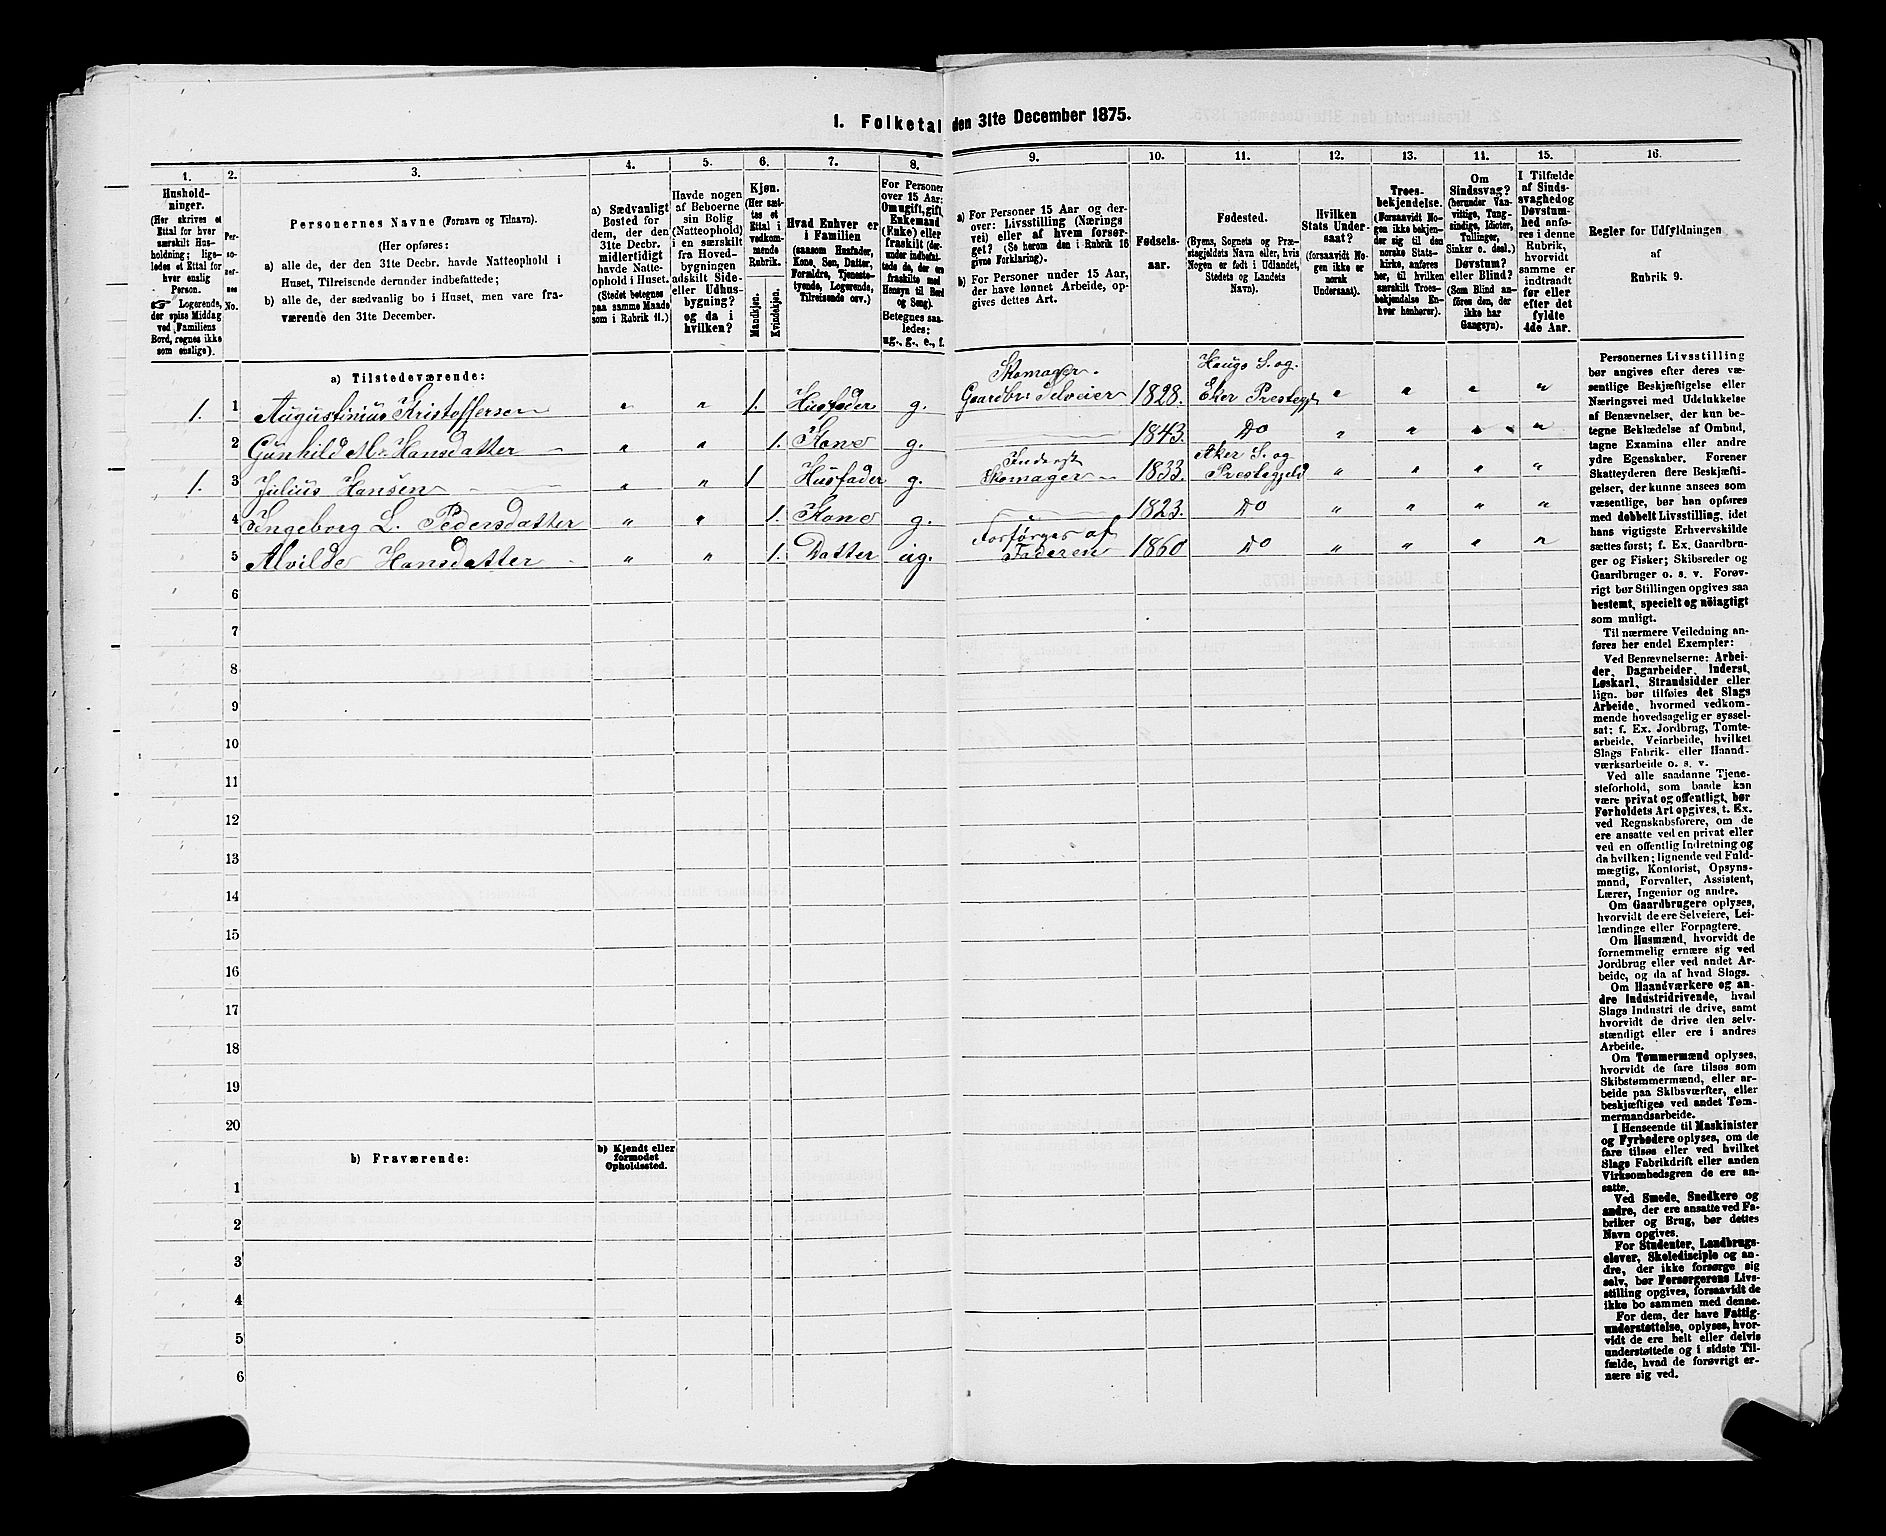 1. Folketal den 31te December 1875.
1. 2. 3. 4. 5. 6. 7. 8. 9. 10. 11. 12. 13. 14. 15. 16.
Hushold-
ninger.
(Her skrives et
Ettal for hver
særskilt Hus-
holdning; lige-
ledes et Ettal for
hver enslig
Person.
☞ Logerende,
der spise Middag
ved Familiens
Bord, regnes ikke
som enslige).
Per-
so-
ner-
nes
No.
Personernes Navne (Fornavn og Tilnavn).
(Her opføres:
a) alle de, der den 31te Decbr. havde Natteophold i
Huset, Tilreisende derunder indbefattede;
b) alle de, der sædvanlig bo i Huset, men vare fra-
værende den 31te December.
a) Sædvanligt
Bosted for
dem, der den
31te Decbr.
midlertidigt
havde Natte-
ophold i Huset.
(Stedet betegnes
paa samme Maade
som i Rubrik 11.)
Havde nogen
af Beboerne
sin Bolig
(Natteophold)
i en særskilt
fra Hoved-
bygningen
adskilt Side-
eller Udhus-
bygning?
og da i
hvilken?
Kjøn.
(Her sæt-
tes et
Ettal i
vedkom-
mende
Rubrik.
Mandkjøn.
Kvindekjøn.
Hvad Enhver er
i Familien
(saasom Husfader,
Kone, Søn, Datter,
Forældre, Tjeneste-
tyende, Logerende,
Tilreisende osv.)
For Personer
over 15 Aar:
Om ugift, gift,
Enkemand
(Enke) eller
fraskilt (der-
under indbefat-
tede de, der ere
fraskilte med
Hensyn til Bord
og Seng).
Betegnes saa-
ledes:
ug., g., e., f.
a) For Personer 15 Aar og der-
over: Livsstilling (Nærings
vei) eller af hvem forsør-
get? (Se herom den i Rubrik 16
givne Forklaring).
b) For Personer under 15 Aar,
der have lønnet Arbeide, op-
gives dettes Art.
Fødsels-
aar.
Fødested.
(Byens, Sognets og Præ-
stegjeldets Navn eller, hvis
Nogen er født i Udlandet,
Stedets og Landets
Navn).
Hvilken
Stats Under-
saat?
(forsaavidt No-
gen ikke er
norsk
Undersaat).
Troes-
bekjendelse.
(Forsaavidt No-
gen ikke bekjen-
der sig til den
norske Stats-
kirke, anføres
her, til hvilken
særskilt Troes-
bekjendelse En-
hver henhører).
Om
Sindssvag?
(herunder Van-
vittige, Tung-
sindige, Idioter,
Tullinger,
Sinker o. desl.)
Døvstum?
eller Blind?
(Som Blind an-
føres den, der
ikke har
Gangsyn).
I Tilfælde
af Sinds-
svaghed og
Døvstum-
hed anfø-
res i denne
Rubrik,
hvorvidt
samme er
indtraadt
før eller
efter det
fyldte
4de Aar.
Regler for Udfyldningen
af
Rubrik 9.
a) Tilstedeværende:
1. 1 Augustinius Kristoffersen " " 1. Husfader g. Skomager. Gaardbr. Selveier 1828. Haugs S. og Eker Prestegjd " " " "
2 Gunhild M. Hansdatter " " 1. Kone g. 1843. Do " " " "
1. 3 Julius Hansen " " 1 Husfader g. Inderst Skomager 1833. Aker S. og Prestegjeld " " " "
4 Ingeborg L. Pedersdatter " " 1. Kone g. 1823. Do " " " "
5 Alvilde Hansdatter " " 1. Datter ug. Forsörges af Faderen 1860 Do " " " "
6
7
8
9
10
11
12
13
14
15
16
17
18
19
20
b) Fraværende:
b) Kjendt eller
formodet
Opholdssted.
1
2
3
4
5
6
Personernes Livsstilling
bør angives efter deres væ-
sentlige Beskjæftigelse eller
Næringsvei med Udelukkelse
af Benævnelser, der kun be-
tegne Beklædelse af Ombud,
tagne Examina eller andre
ydre Egenskaber. Forener
Skatteyderen flere Beskjæfti-
gelser, der kunne ansees som
væsentlige, bør han opføres
med dobbelt Livsstilling, idet
hans vigtigste Erhvervskilde
sættes først; f. Ex. Gaardbru-
ger og Fisker; Skibsreder og
Gaardbruger o. s. v. Forøv-
rigt bør Stillingen opgives saa
bestemt, specielt og nöiagtigt
som muligt.
Til nærmere Veiledning an-
føres her endel Exempler:
Ved Benævnelserne: Arbei-
der, Dagarbeider, Inderst,
Løskarl, Strandsidder eller
lign. bør tilføies det Slags
Arbeide, hvormed vedkom-
mende hovedsagelig er syssel-
sat; f. Ex. Jordbrug, Tomte-
arbeide, Veiarbeide, hvilket
Slags Fabrik- eller Haand-
værksarbeide o. s. v.
Ved alle saadanne Tjene-
steforhold, som baade kan
være privat og offentligt, bør
Forholdets Art opgives, t. Ex.
ved Regnskabsførere, om de
ere ansatte ved en privat eller
ved en offentlig Indretning og
da hvilken; lignende ved Fuld-
mægtig, Kontorist, Opsyns-
mand, Forvalter, Assistent,
Lærer, Ingeniør og andre.
Om Gaardbrugere oplyses,
hvorvidt de ere Selveiere, Lei-
lændinge eller Forpagtere.
Om Husmænd, hvorvidt de
fornemmelig ernære sig ved
Jordbrug eller ved andet Ar-
beide, og da af hvad Slags.
Om Haandværkere og an-
dre Industridrivende, hvad
Slags Industri de drive, samt
hvorvidt de drive den selv-
stændigt eller ere i andres
Arbeide.
Om Tømmermænd oplyses,
hvorvidt de fare tilsøs som
Skibstømmermænd, eller ar-
beide paa Skibsværfter, eller
beskjæftiges ved andet Tøm-
mermandsarbeide.
I Henseende til Maskinister
og Fyrbødere oplyses, om de
fare tilsøs eller ved hvilket
Slags Fabrikdrift eller anden
Virksomhedsgren de ere an-
satte.
Ved Smede, Snedkere og
andre, der ere ansatte ved Fa-
briker og Brug, bør dettes
Navn opgives.
For Studenter, Landbrugs-
elever, Skoledisciple og an-
dre, der ikke forsørge sig
selv, bør Forsørgerens Livs-
stilling opgives, forsaavidt de
ikke bo sammen med denne.
For dem, der have Fattig-
understøttelse, oplyses, hvor-
vidt de ere helt eller delvis
understøttede og i sidste Til-
fælde, hvad de forøvrigt er-
nære sig ved.